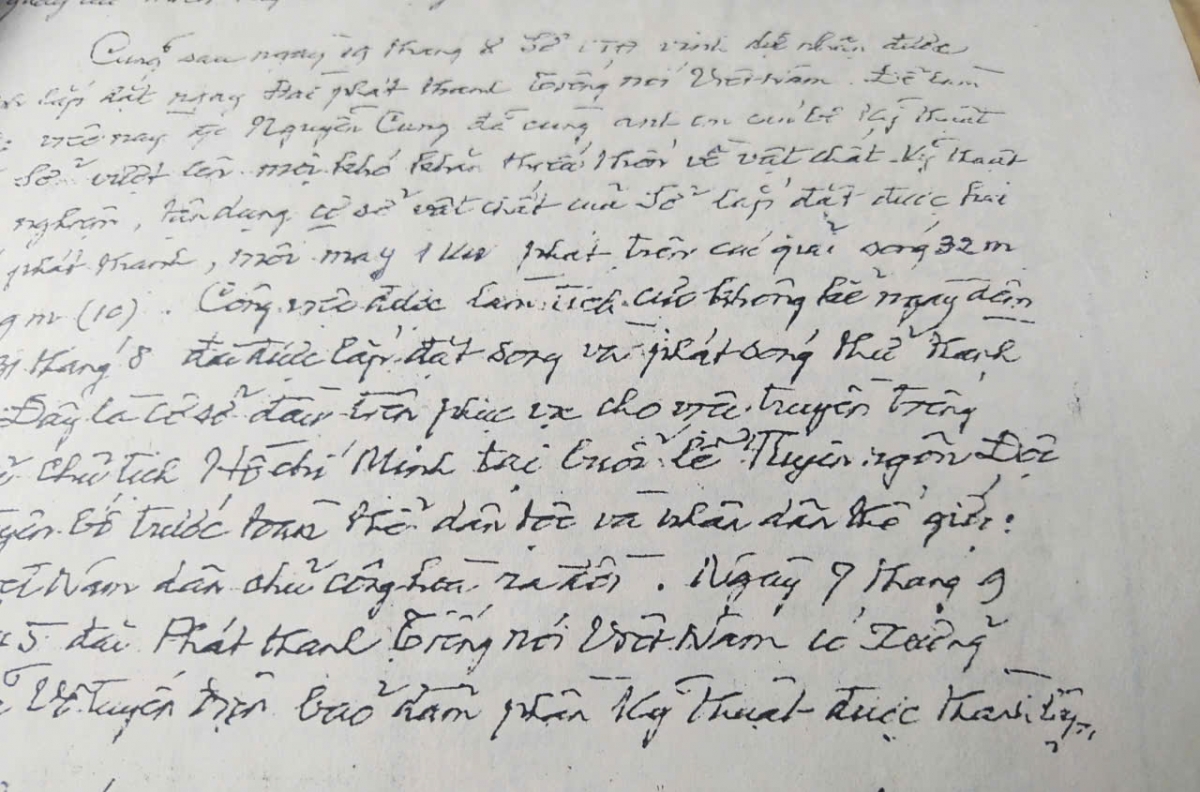 Cũng sau ngày 19 tháng 8 Sở VTĐ vinh dự nhận được
lắp đặt ngay Đài phát thanh Tiếng nói Việt Nam. Để làm
việc này đ/c Nguyễn Cung đã cùng anh em cán bộ kỹ thuật
Sở vượt lên mọi khó khăn thiếu thốn về vật chất kỹ thuật
nghiệm, tận dụng cơ sở vật chất của Sở lắp đặt được hai
phát thanh, mỗi máy 1 KW phát trên các giải sóng 32 m
m (10). Công việc được làm tích cực không kể ngày đêm
31 tháng 8 đã được lắp đặt song và phát sóng thử thành
Đây là cơ sở đầu tiên phục vụ cho việc truyền tiếng
Chủ tịch Hồ Chí Minh tại buổi lễ Tuyên ngôn Độc
yên bố trước toàn thể dân tộc và nhân dân thế giới:
Nam dân chủ cộng hoà ra đời. Ngày 7 tháng 9
45 đài Phát thanh Tiếng nói Việt Nam có Xưởng
Vô tuyến điện bảo đảm phần kỹ thuật được thành lập,